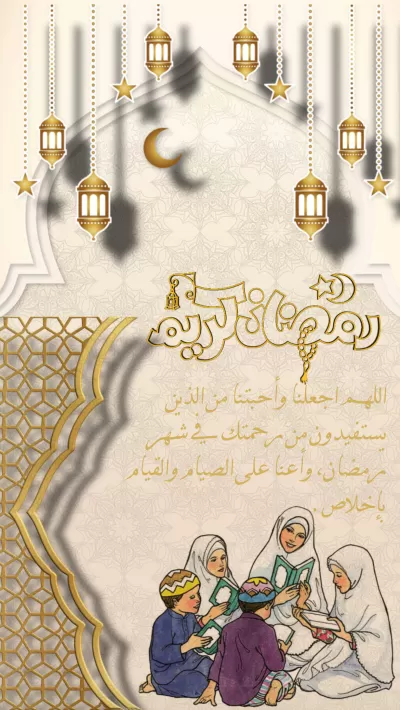 رمضان كريم
اللهم اجعلنا وأحبتنا من الذين
يستفيدون من رحمتك في شهر
رمضان، وأعنا على الصيام والقيام
بإخلاص.